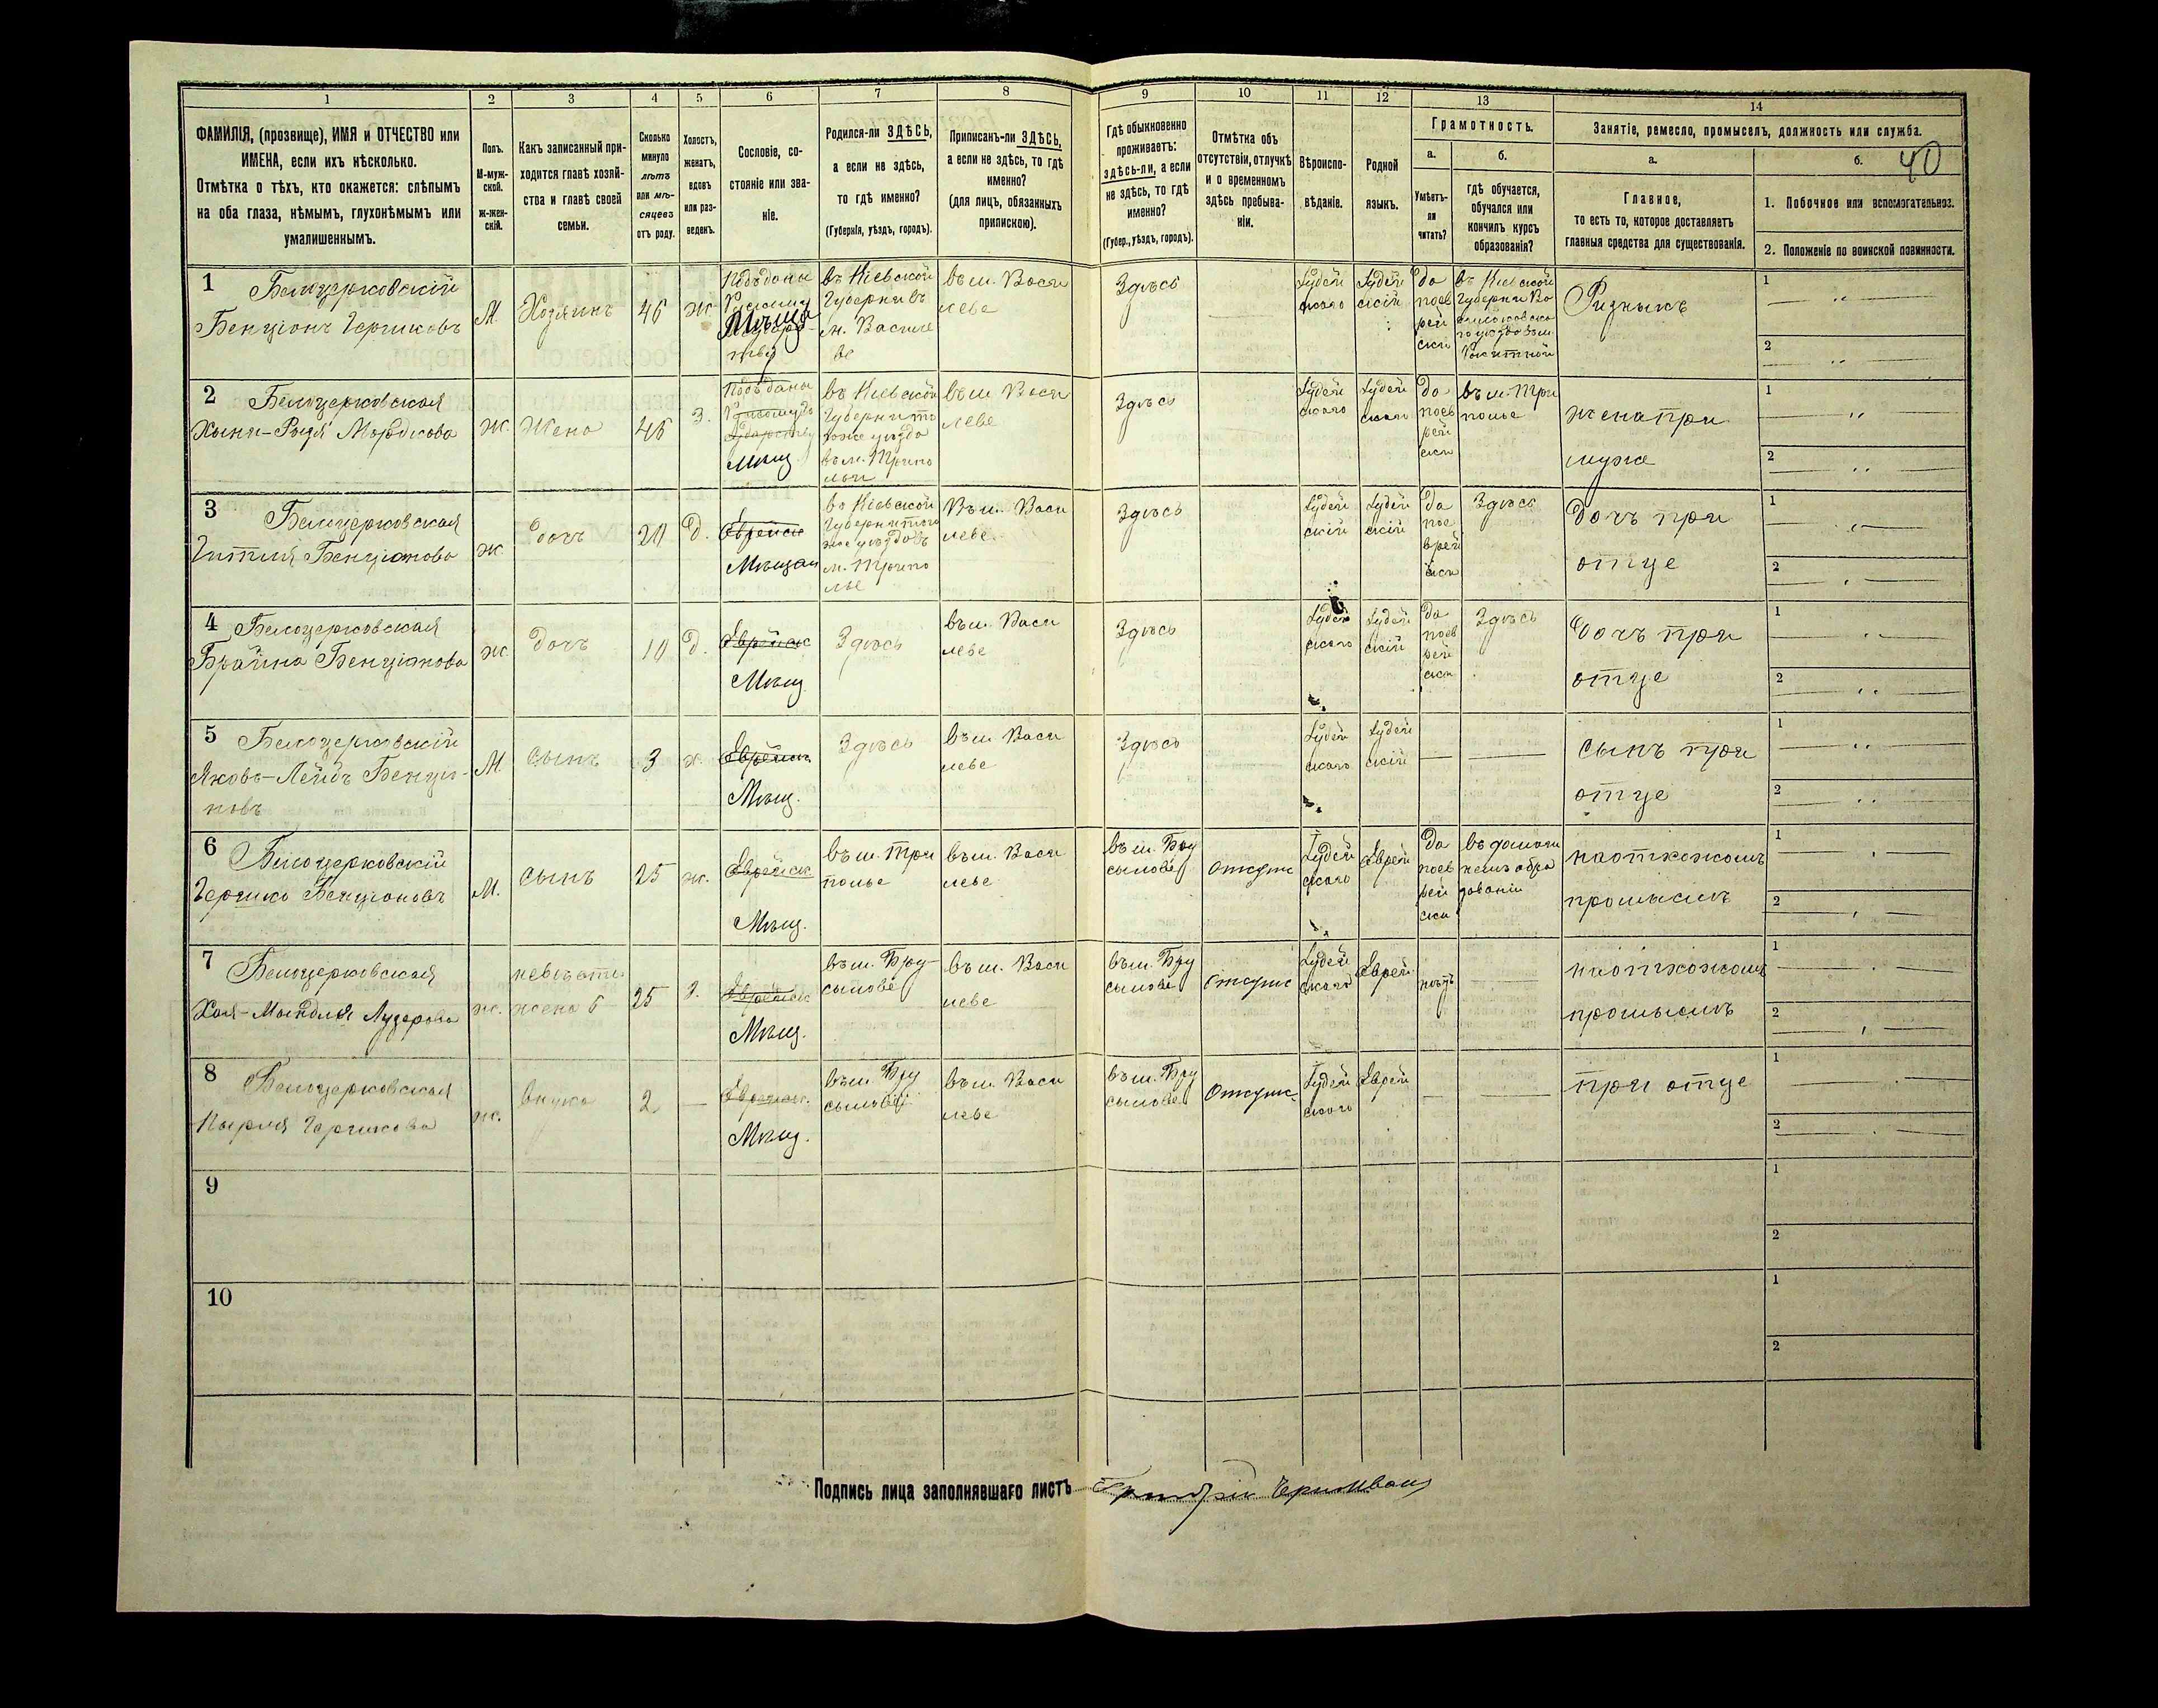 1 2 3 4 5 6 7 8 9 10 11 12 13 14
ФАМИЛІЯ, (прозвище), ИМЯ и ОТЧЕСТВО или
ИМЕНА, если ихъ нѣсколько.
Отмѣтка о тѣхъ, кто окажется: слѣпымъ
на оба глаза, нѣмымъ, глухонѣмымъ или
умалишеннымъ.
Полъ.
М-муж-
ской.
ж-жен-
скій.
Какъ записанный при-
ходится главѣ хозяй-
ства и главѣ своей
семьи.
Сколько
минуло
лѣтъ
или мѣ-
сяцевъ
отъ роду.
Холостъ,
женатъ,
вдовъ
или раз-
веденъ.
Сословіе, со-
стояніе или зва-
ніе.
Родился-ли ЗДѢСЬ,
а если не здѣсь,
то гдѣ именно?
(Губернія, уѣздъ, городъ).
Приписанъ-ли ЗДѢСЬ,
а если не здѣсь, то гдѣ
именно?
(для лицъ, обязанныхъ
припискою).
Гдѣ обыкновенно
проживаетъ:
здѣсь-ли, а если
не здѣсь, то гдѣ
именно?
(Губер., уѣздъ, городъ).
Отмѣтка объ
отсутствіи, отлучкѣ
и о временномъ
здѣсь пребыва-
ніи.
Вѣроиспо-
вѣданіе.
Родной
языкъ.
Грамотность.
а.
Умѣетъ-
ли
читать?
б.
гдѣ обучается,
обучался или
кончилъ курсъ
образованія?
Занятіе, ремесло, промыселъ, должность или служба.
а.
Главное,
то есть то, которое доставляетъ
главныя средства для существованія.
б.
40
1. Побочное или вспомогательное.
2. Положеніе по воинской повинности.
1
Белоцерковскій
Бенціонъ Гершковъ
М.
Хозяинъ
46
ж.
въ Кіевской
Губерніи въ
м. Василе
ве
въ м. Васи
леве
Здѣсь
Іудей
скаго
Іудей
скій
да
поев
рей
ски
въ Кіевской
Губерніи Ва
Резникъ
1
2
2
Белоцерковская
Мордкова
ж.
Жена
46
З.
Мѣщ.
въ Кіевской
въ м. Трипо
въ м. Васи
леве
Здѣсь
Іудей
скаго
Іудей
скаго
да
поев
рей
ски
въ м. Три
полье
жена при
муже
1
2
3
Белоцерковская
Бенціонова
ж.
дочь
20
Д.
Еврейск
Мѣщан
въ Кіевской
м. Трипо
лье
Въ м. Васи
леве
Здѣсь
Іудей
скій
Іудей
скій
да
пое
врей
ски
Здѣсь
Дочь при
отце
1
2
4
Белоцерковская
Брайна Бенціонова
ж.
дочь
10
Д.
Еврейск
Мѣщ.
Здѣсь
въ м. Васи
леве
Здѣсь
Іудей
скаго
Іудей
скій
Да
поев
рей
ски
Здѣсь
Дочь при
отце
1
2
5
Белоцерковскій
Яковъ-Лейбъ Бенціо-
новъ
М.
сынъ
3
х.
Еврейск
Мѣщ.
Здѣсь
въ м. Васи
леве
Здѣсь
Іудей
скаго
Іудей
скій
сынъ при
отце
1
2
6
Белоцерковскій
Гершко Бенціоновъ
М.
сынъ
25
ж.
Еврейск
Мѣщ.
въ м. Три
полье
въ м. Васи
леве
въ м. Бру
сылове
Отсутс
Іудей
скаго
Еврей
Да
поев
рей
ски
въ домаш
немъ обра
зованіи
на отхожомъ
промыслѣ
1
2
7
Белоцерковская
Хая-Мындля Лузерова
ж.
невестк
жена 6
25
З.
Еврейск
Мѣщ.
въ м. Бру-
сылове
въ м. Васи
леве
въ м. Бру
сылове
Отсутс
Іудей
скаго
Еврей
нѣтъ
на отхожомъ
промыслѣ
1
2
8
Белоцерковская
Гершкова
ж.
внука
2
Еврейск.
Мѣщ.
въ м. Бру
сылове
въ м. Васи
леве
въ м. Бру
сылове
Отсутс.
Іудей
скаго
Еврей
при отце
1
2
9
1
2
10
1
2
Подпись лица заполнявшаго листъ